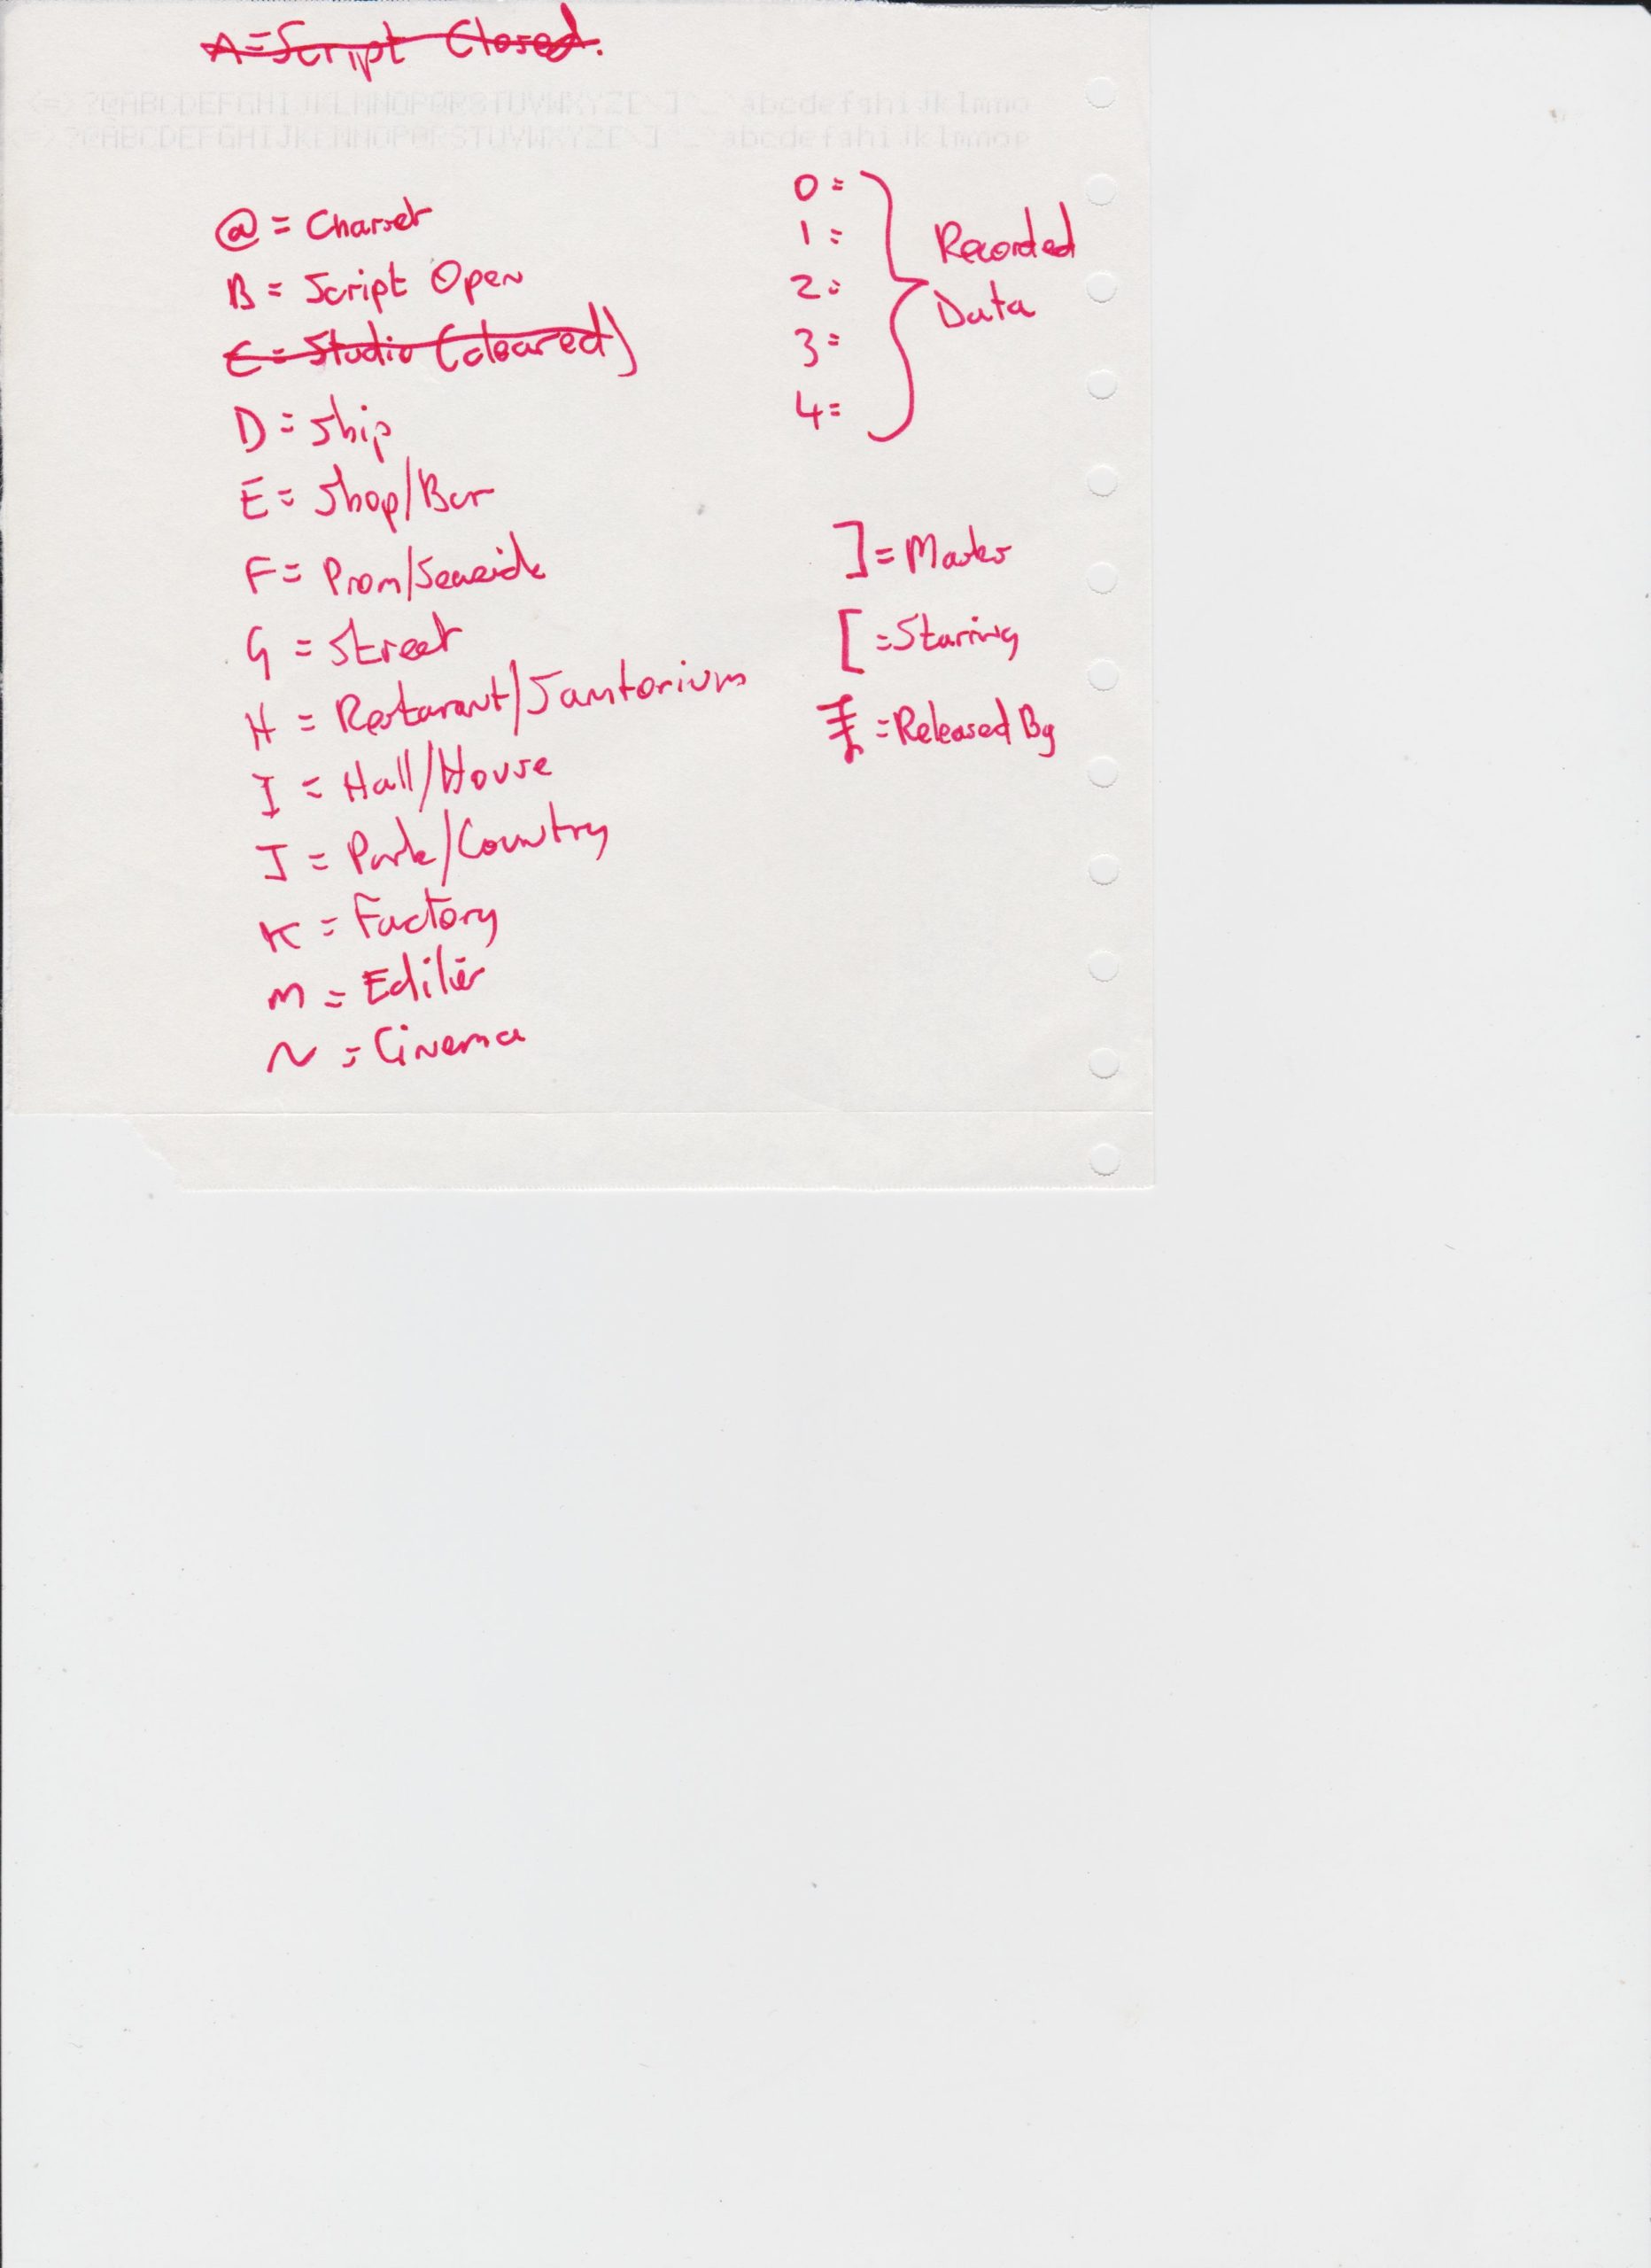 A=Script Closed.
@ = Charset
B = Script Open
C = Studio (cleared)
D = Ship
E = Shop/Bar
F = Prom/Seaside
G = Street
H = Restarant/Sanitorium
I = Hall/House
J = Park/Country
K = Factory
M =
N = Cinema
0 =
1 =
2 =
3 =
4 =
Recorded
Data
] =
[ = Starring
= Released By